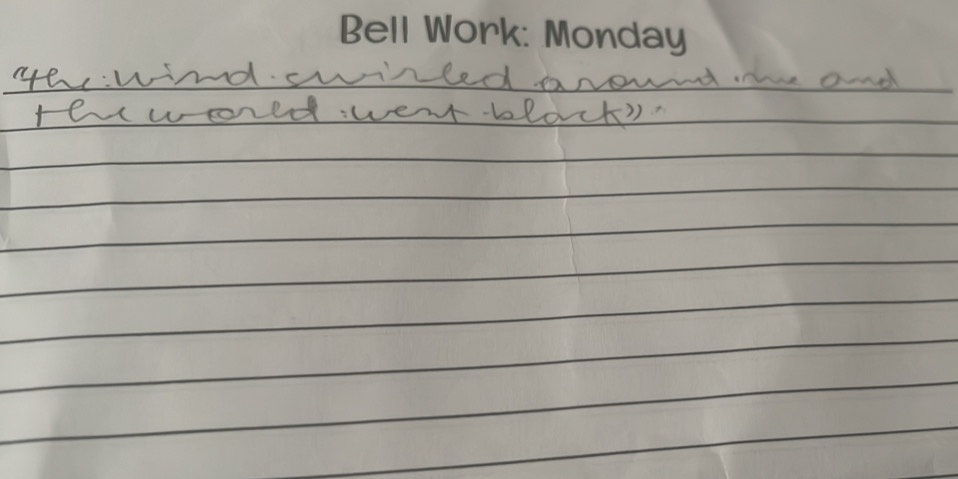 Bell Work: Monday
"the wind swirled around me and
the world went black".